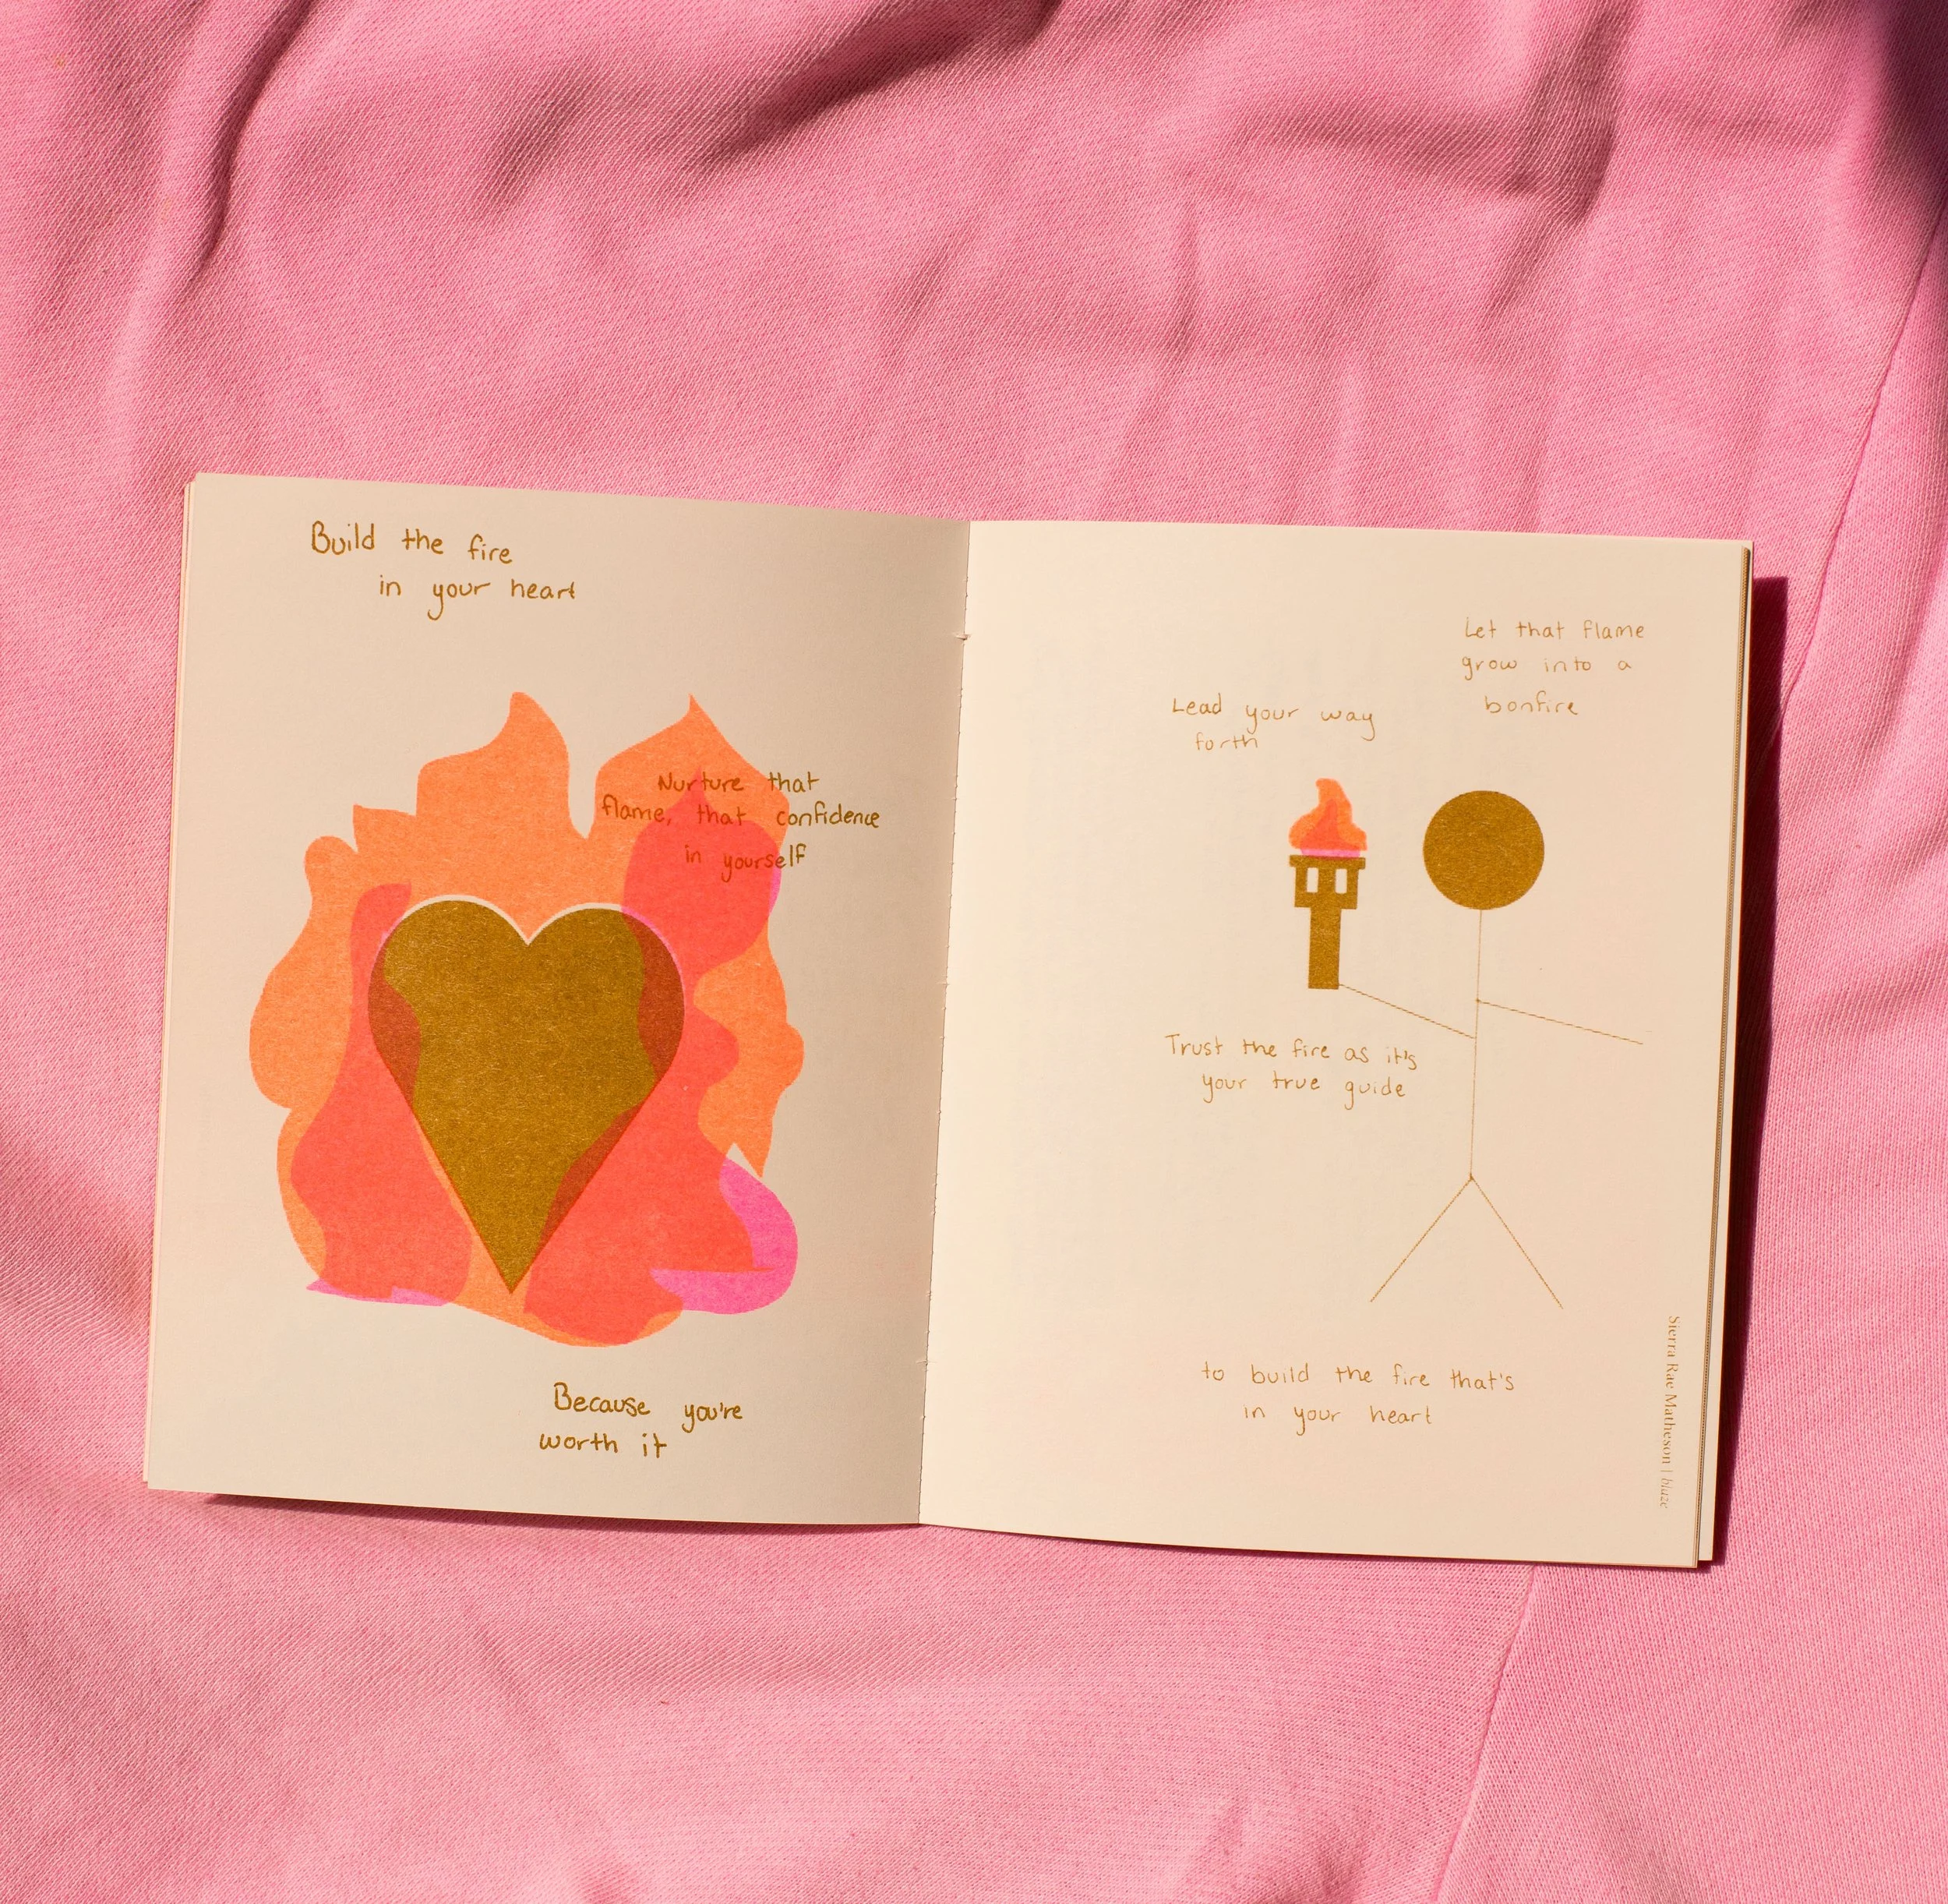 Build the fire
in your heart
Nurture that
flame, that confidence
in yourself
Because you're
worth it
Let that flame
grow into a
bonfire
Lead your way
forth
Trust the fire as it's
your true guide
to build the fire that's
in your heart
Sierra Rae Matheson | blaze